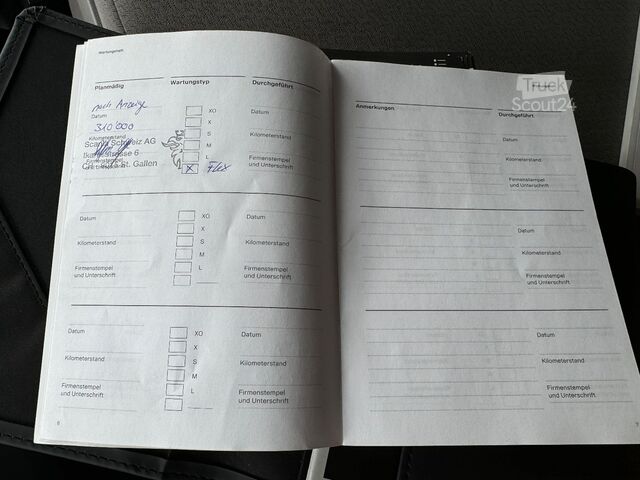 Wartungsheft
Planmäßig Wartungstyp Durchgeführt
nach Anzeige
Datum XO Datum
310'000 X
Kilometerstand S Kilometerstand
Scania Schweiz AG M
L Firmenstempel
und Unterschrift
St. Gallen X Flex
Datum XO Datum
X
Kilometerstand S Kilometerstand
M
Firmenstempel L Firmenstempel
und Unterschrift und Unterschrift
Datum XO Datum
X
Kilometerstand S Kilometerstand
M
Firmenstempel L Firmenstempel
und Unterschrift und Unterschrift
6
Truck
Scout24
Anmerkungen Durchgeführt
Datum
Kilometerstand
Firmenstempel
und Unterschrift
Datum
Kilometerstand
Firmenstempel
und Unterschrift
Datum
Kilometerstand
Firmenstempel
und Unterschrift
7